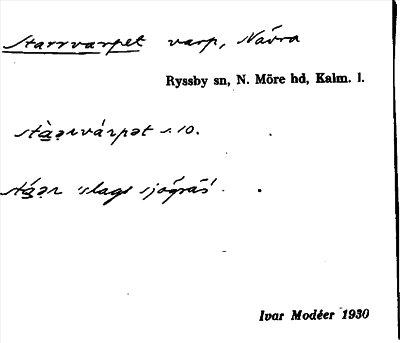 Starrvarpet varp, Návra
Ryssby sn, N. Möre hd, Kalm. l.
stà̱ə̱rvárpət s. 10.
stá̱ə̱r 'slags sjögräs'.
Ivar Modéer 1930